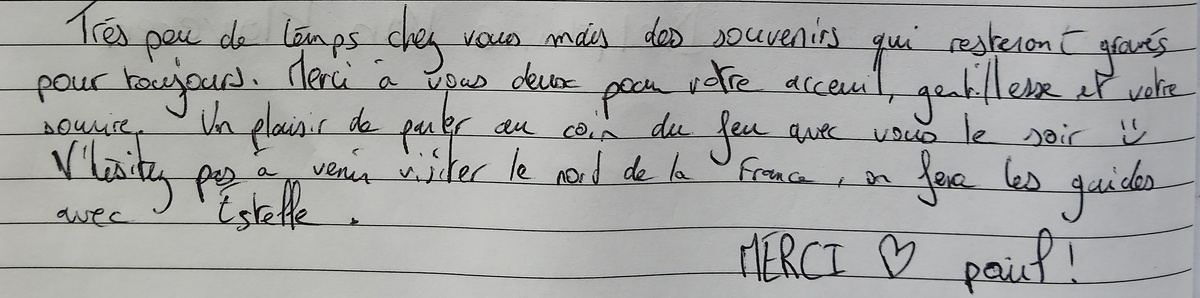 Très peu de temps chez vous mais des souvenirs qui resteront gravés
pour toujours. Merci à vous deux pour votre acceuil, gentillesse et votre
sourire. Un plaisir de parler au coin du feu avec vous le soir :)
N'hésitez pas à venir visiter le nord de la France, on fera les guides
avec Estelle.
MERCI ♡ paul!